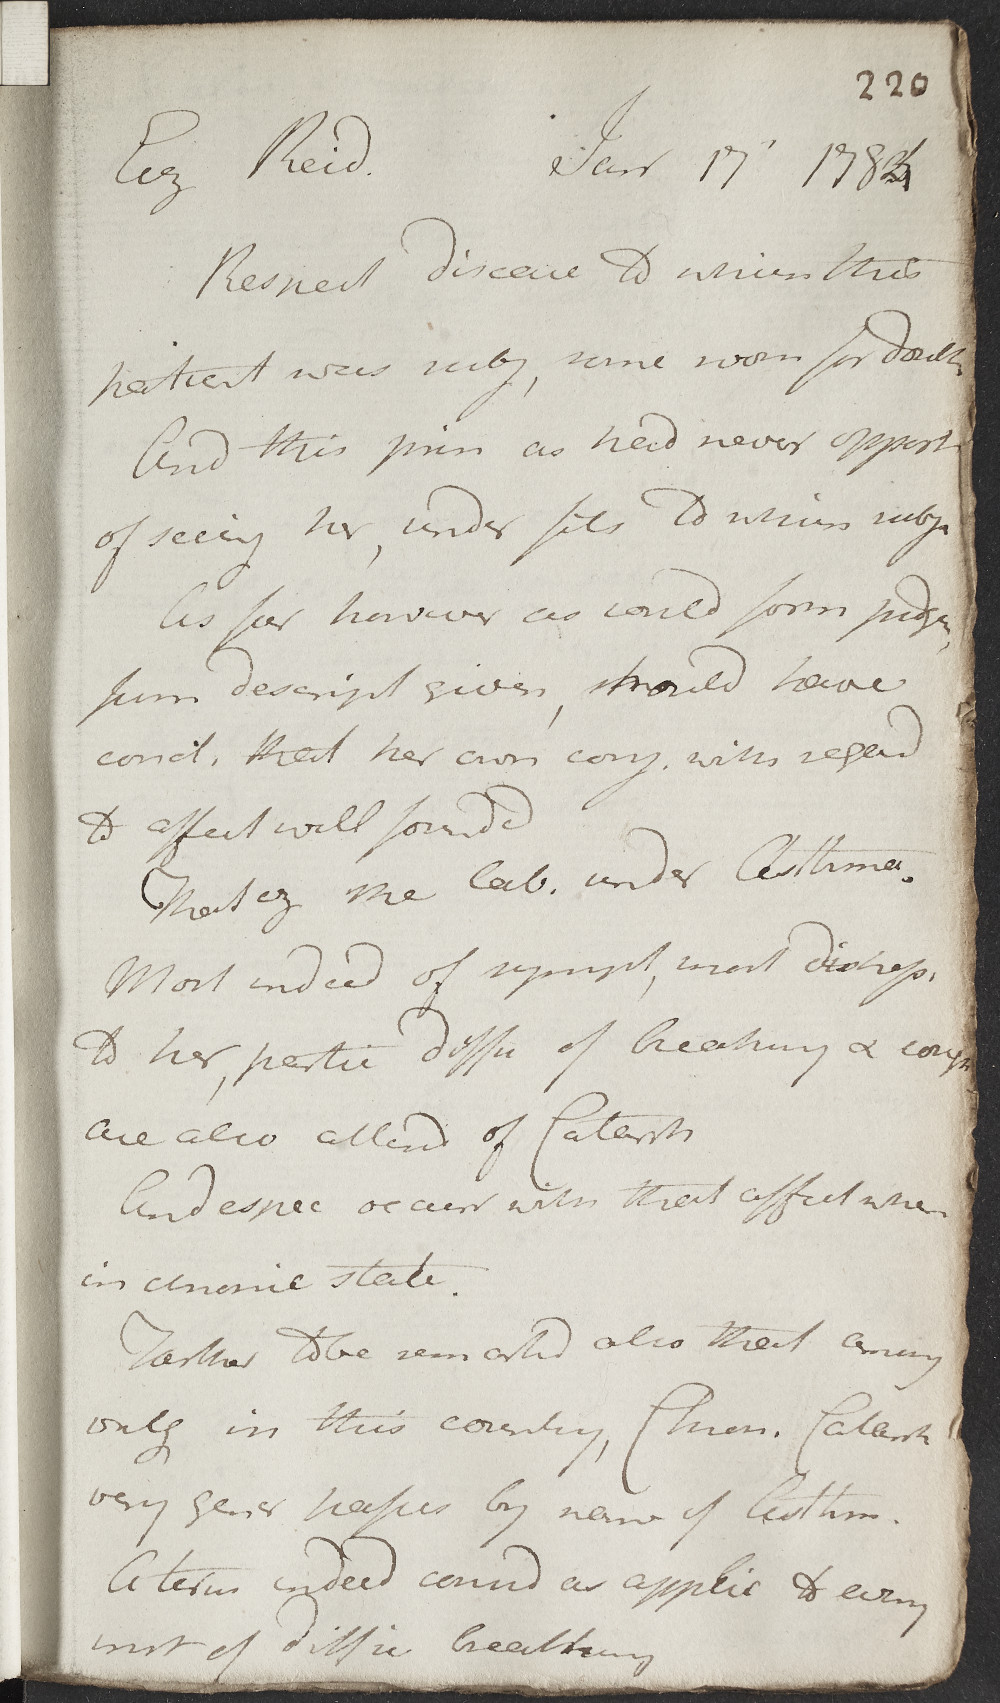 220
Eliz Reid. Jan 17 178
Respect disease to which this
patient was subj, some room for doubt
And this prin as had never opport
of seeing her, under fits to which subj
As far however as could form judgm,
from descript given, should have
concl. that her own conj. with regard
to affect well found
That eg she lab. under Asthma.
Most indeed of sympt, most distress.
to her, partic diffic of breathing & cough
are also attend of Catarrh
And espec occurr with that affect when
in chronic state.
Farther to be remarked also that among
vulg in this country, Chron. Catarrh
very gener passes by name of Asthm.
A term indeed consid as applic to every
inst of diffic breathing